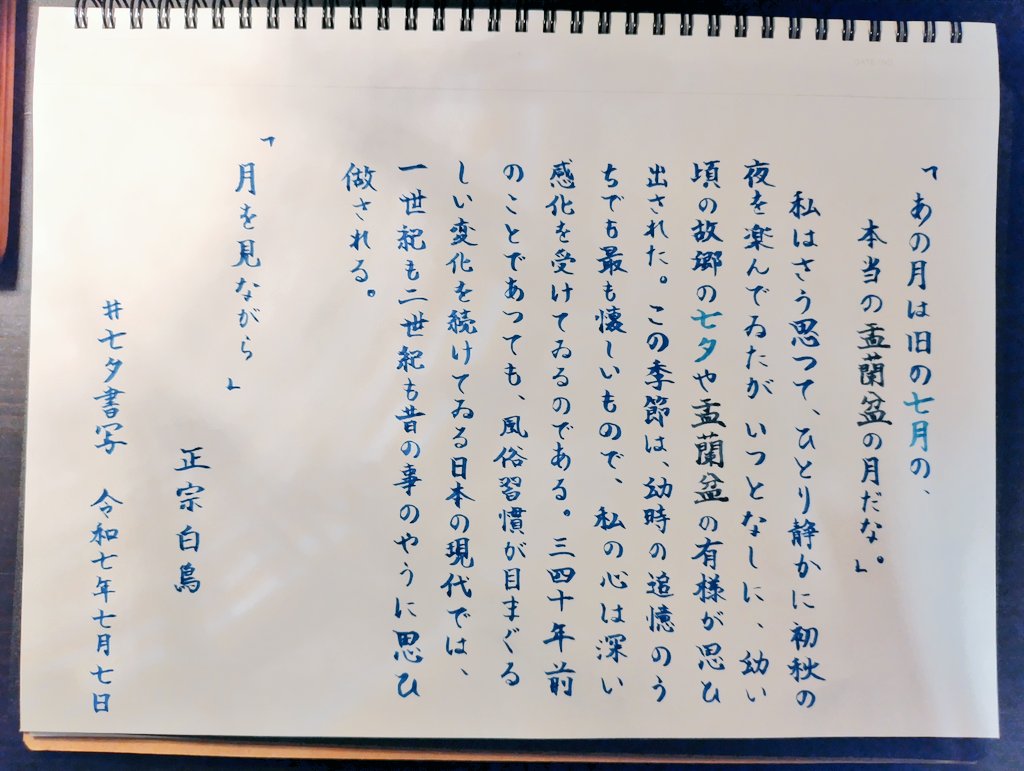 「あの月は旧の七月の、
本当の盂蘭盆の月だな。」
私はさう思つて、ひとり静かに初秋の
夜を楽んでゐたが いつとなしに、幼い
頃の故郷の七夕や盂蘭盆の有様が思ひ
出された。この季節は、幼時の追憶のう
ちでも最も懐しいもので、私の心は深い
感化を受けてゐるのである。三四十年前
のことであつても、風俗習慣が目まぐる
しい変化を続けてゐる日本の現代では、
一世紀も二世紀も昔の事のやうに思ひ
做される。
「月を見ながら」
正宗白鳥
#七夕書写 令和七年七月七日